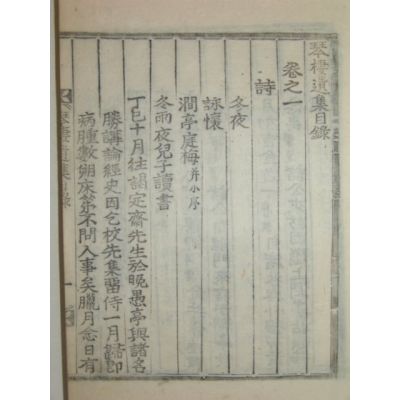 琴樓遺集目錄
卷之一
詩
冬夜
詠懷
澗亭庭梅 并小序
冬雨夜兒子讀書
丁巳十月往謁定齋先生於晩愚亭與諸名
勝講論經史因乞校先集留侍一月歸卽
病腫數朔床笫不問人事矣臘月念日有
琴樓遺集目錄 一